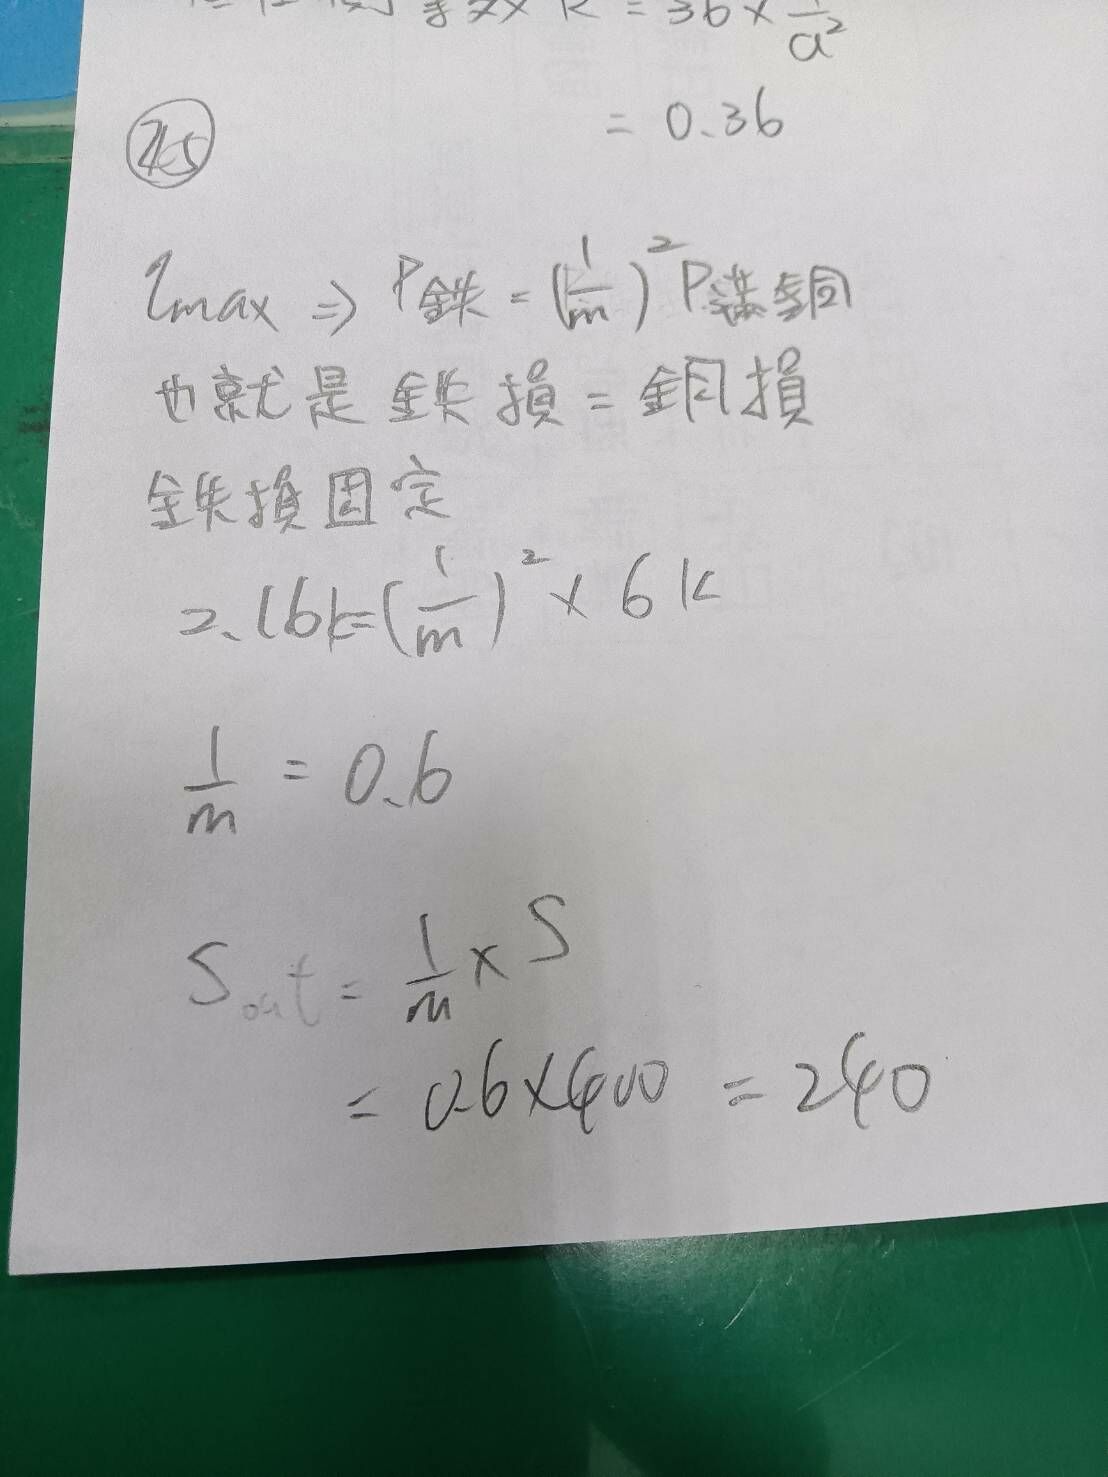 = 36 × 1/a²
= 0.36
ηmax ⇒ P鉄 = (1/m)² P滿銅
也就是鉄損 = 銅損
鉄損固定
2.16k=(1/m)² × 6k
1/m = 0.6
Sout = 1/m × S
= 0.6×400 = 240